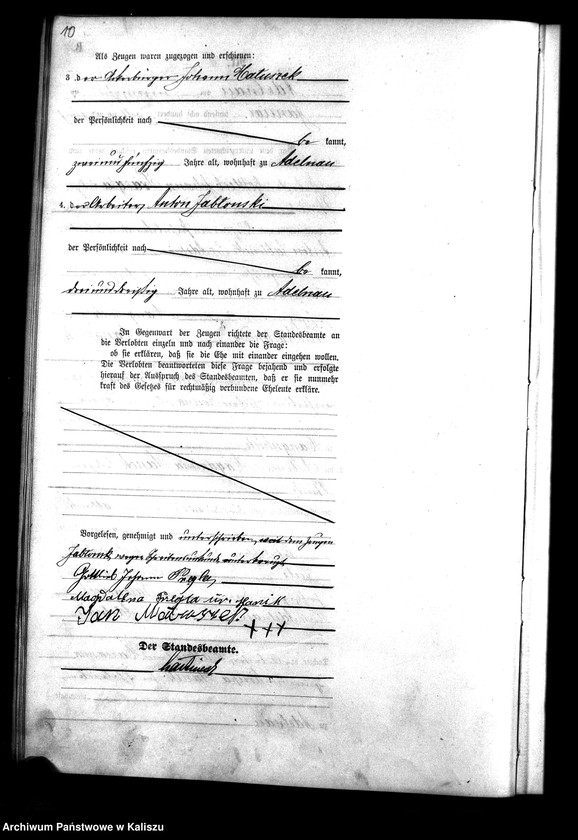 10
Als Zeugen waren zugezogen und erschienen:
3. der Ackerbürger Johann Matuszek
der Persönlichkeit nach
be kannt,
zweiundfünfzig Jahre alt, wohnhaft zu Adelnau
4. der Arbeiter Anton Jabłonski
der Persönlichkeit nach
be kannt,
dreiunddreißig Jahre alt, wohnhaft zu Adelnau
In Gegenwart der Zeugen richtete der Standesbeamte an
die Verlobten einzeln und nach einander die Frage:
ob sie erklären, daß sie die Ehe mit einander eingehen wollen.
Die Verlobten beantworteten diese Frage bejahend und erfolgte
hierauf der Ausspruch des Standesbeamten, daß er sie nunmehr
kraft des Gesetzes für rechtmäßig verbundene Eheleute erkläre.
Vorgelesen, genehmigt und unterschrieben, von dem Zeugen
Jabłonski wegen Schreibensunkunde unterkreuzt
Gottlieb Johann
Magdalena ur. Marsik
Jan Matuszek
+++
Der Standesbeamte.
Archiwum Państwowe w Kaliszu